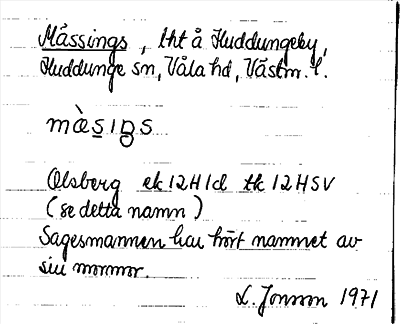 Mässings, lht å Huddungeby,
Huddunge sn, Våla hd, Västm. l.
mæ̀sɪŋs
Olsberg ek 12H1d tk 12HSV
(se detta namn)
Sagesmannen har hört namnet av
sin mormor.
L. Jonson 1971